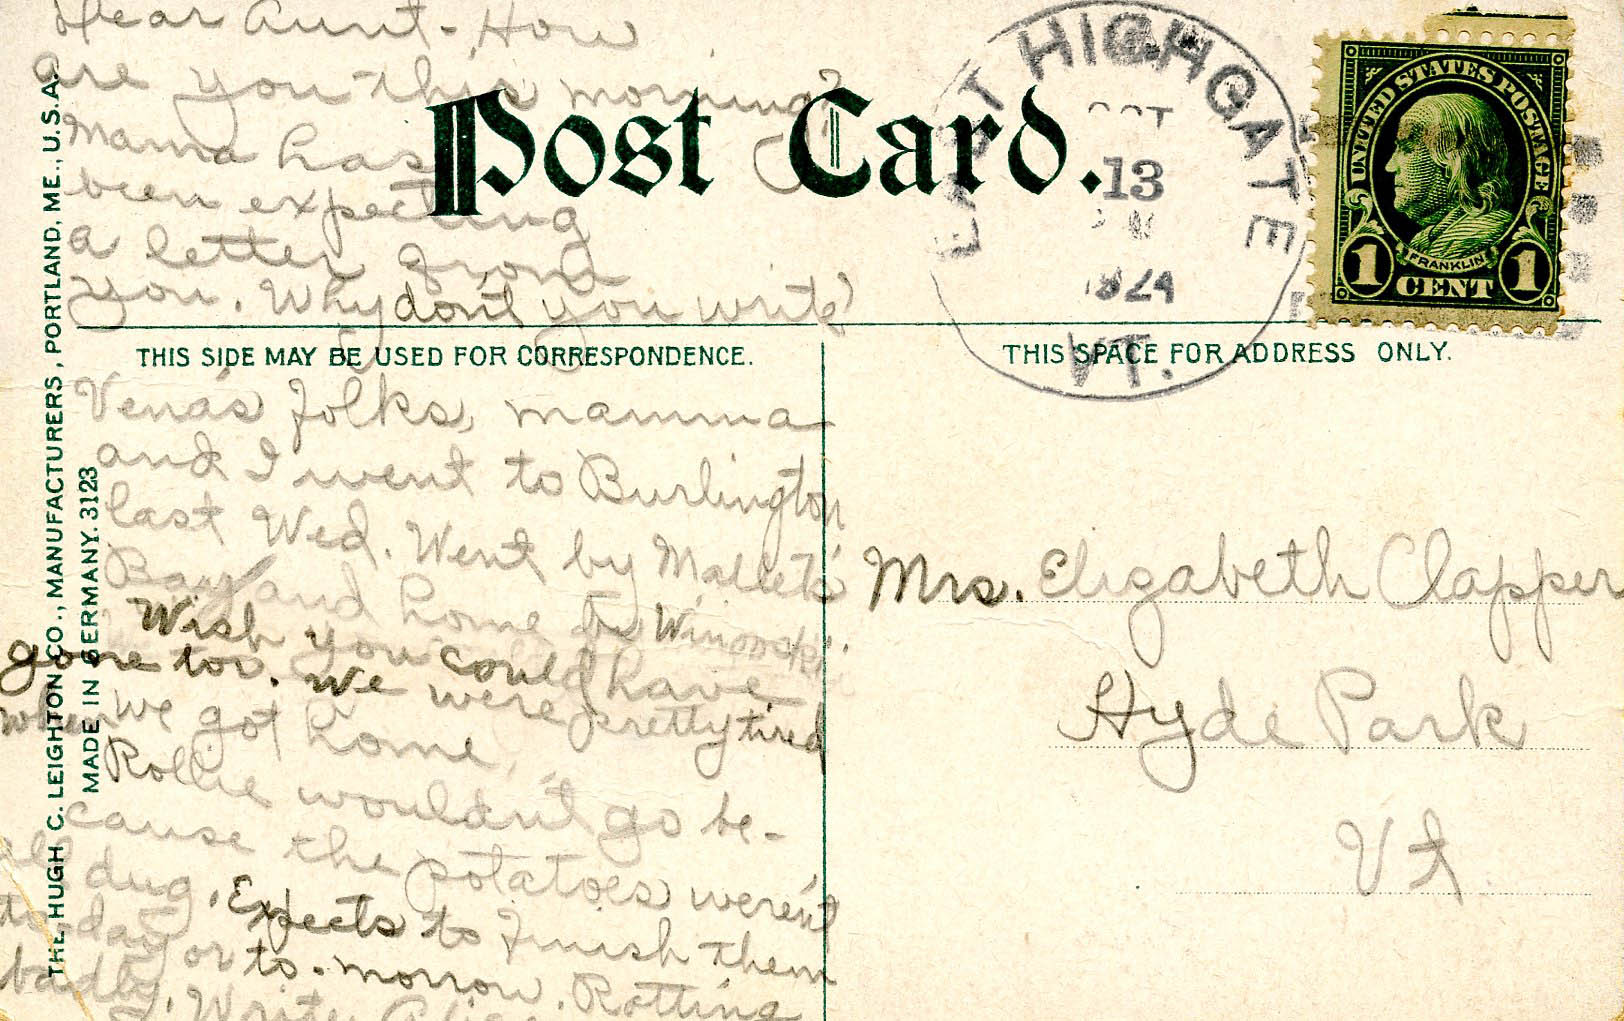 Dear Aunt-How
are you this morning?
Mama has
been expecting
a letter from
you. Why don't you write?
Post Card.
THIS SIDE MAY BE USED FOR CORRESPONDENCE.
Vena's folks, mamma
and I went to Burlington
last Wed. Went by Mallets
Bay and home by Winooski.
Wish you could have
gone too. We were pretty tired
when we got home.
Rollie wouldn't go be-
cause the potatoes weren't
all dug. Expects to finish them
to-day or to-morrow. Rotting
badly. Write Alice
THE HUGH C. LEIGHTON CO., MANUFACTURERS, PORTLAND, ME., U.S.A.
MADE IN GERMANY. 3123
EAST HIGHGATE
OCT
13
1924
VT.
UNITED STATES POSTAGE
FRANKLIN
1 CENT 1
THIS SPACE FOR ADDRESS ONLY.
Mrs. Elizabeth Clapper
Hyde Park
Vt.